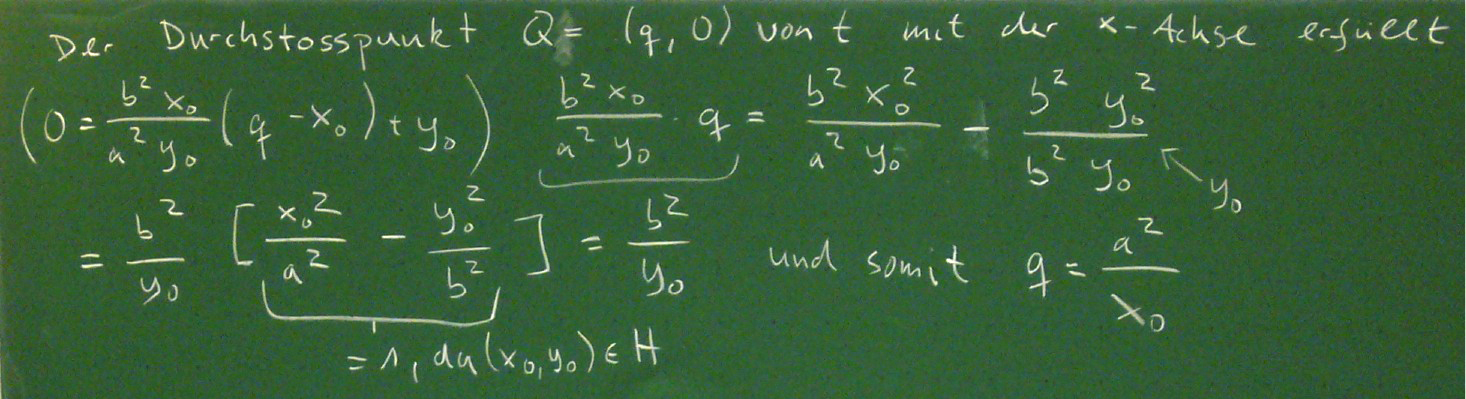 Der Durchstosspunkt Q = (q, 0) von t mit der x-Achse erfüllt
(0 = \frac{b^2 x_0}{a^2 y_0} (q - x_0) + y_0) \underbrace{\frac{b^2 x_0}{a^2 y_0} \cdot q} = \frac{b^2 x_0^2}{a^2 y_0} - \frac{b^2 y_0^2}{b^2 y_0} ↖ y_0
= \frac{b^2}{y_0} [\underbrace{\frac{x_0^2}{a^2} - \frac{y_0^2}{b^2}}] = \frac{b^2}{y_0} und somit q = \frac{a^2}{x_0}
= 1, da (x_0, y_0) ∈ H